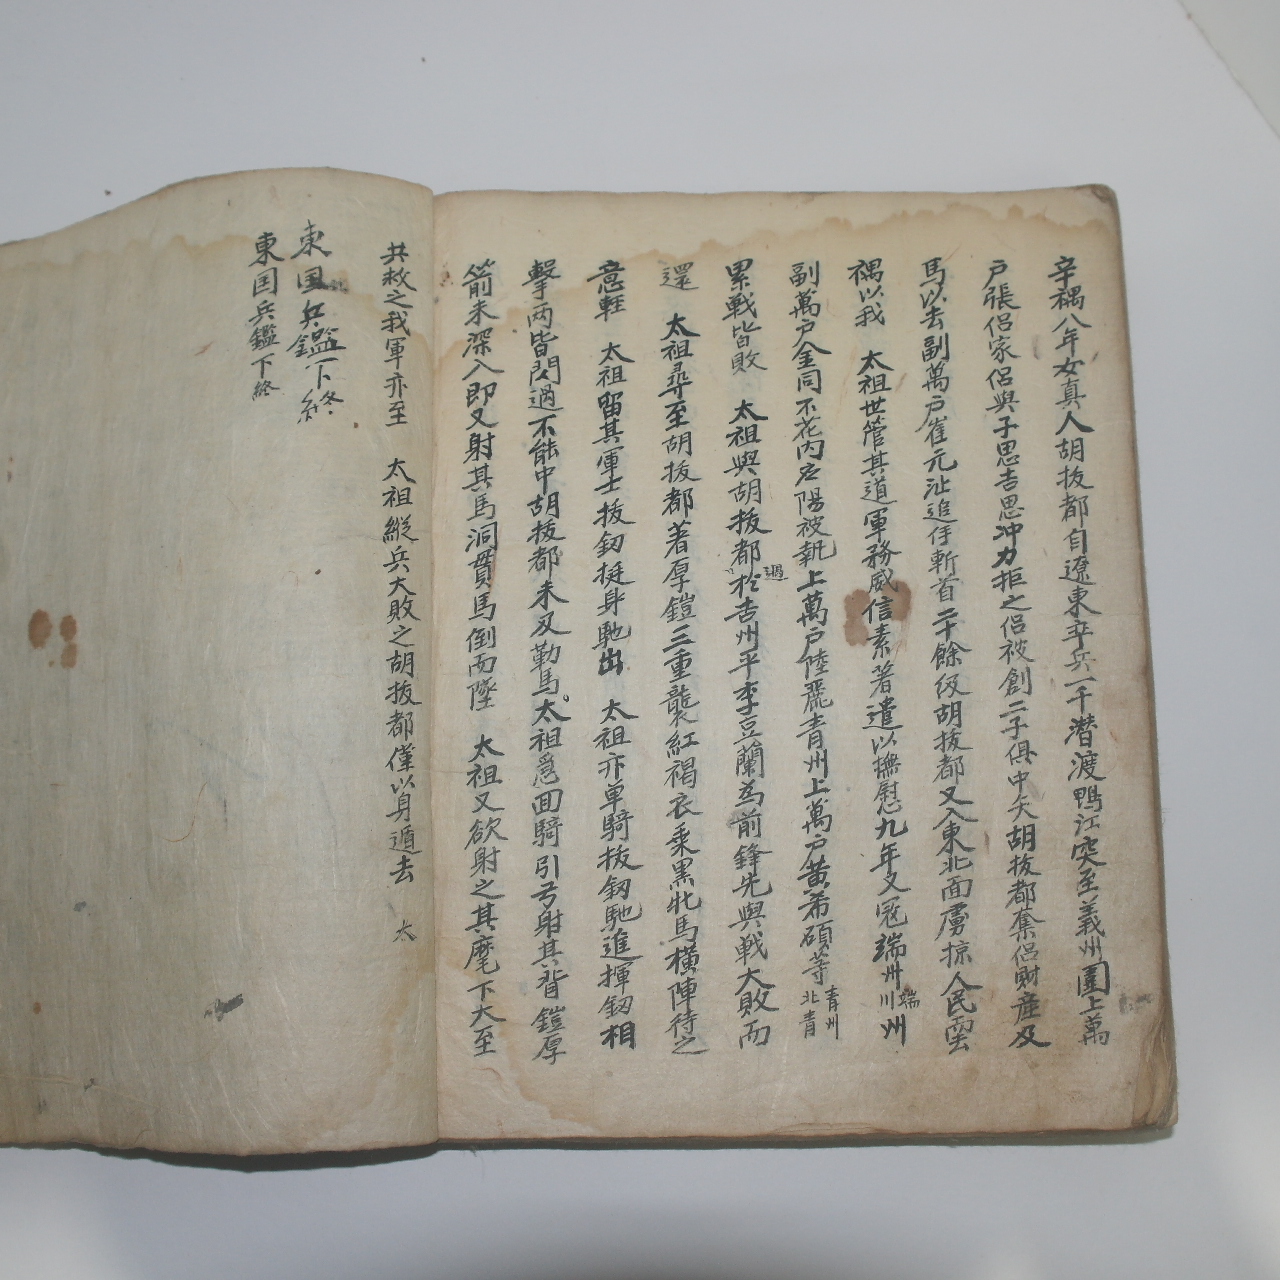 辛禑八年女真人胡拔都自遼東率兵一千潜渡鴨江突至義州圍上萬
戶張侶家侶與子思吉思冲力拒之侶被創二子俱中矢胡拔都奪侶財産及
馬以去副萬戶崔元沚追俘斬首二十餘級胡拔都又入東北面虜掠人民
禑以我 太祖世管其道軍務威信素著遣以撫慰九年又冦端州川端州
副萬戶金同不花内応陽被執上萬戶陸麗青州上萬戶黃希碩等青州北青
累戦皆敗 太祖與胡拔都遇於吉州平李豆蘭為前鋒先與戦大敗而
還 太祖尋至胡拔都著厚鎧三重襲紅褐衣乘黑牝馬横陣待之
意輕 太祖留其軍士拔釼挺身馳出 太祖亦単騎拔釼馳進揮釼相
擊两皆閃過不能中胡拔都未及勒馬太祖急回騎引弓射其背鎧厚
箭未深入即又射其馬洞貫馬倒而墜 太祖又欲射之其麾下大至
共救之我軍亦至 太祖縦兵大敗之胡拔都僅以身遁去 太
東国兵鑑下終
東国兵鑑下終